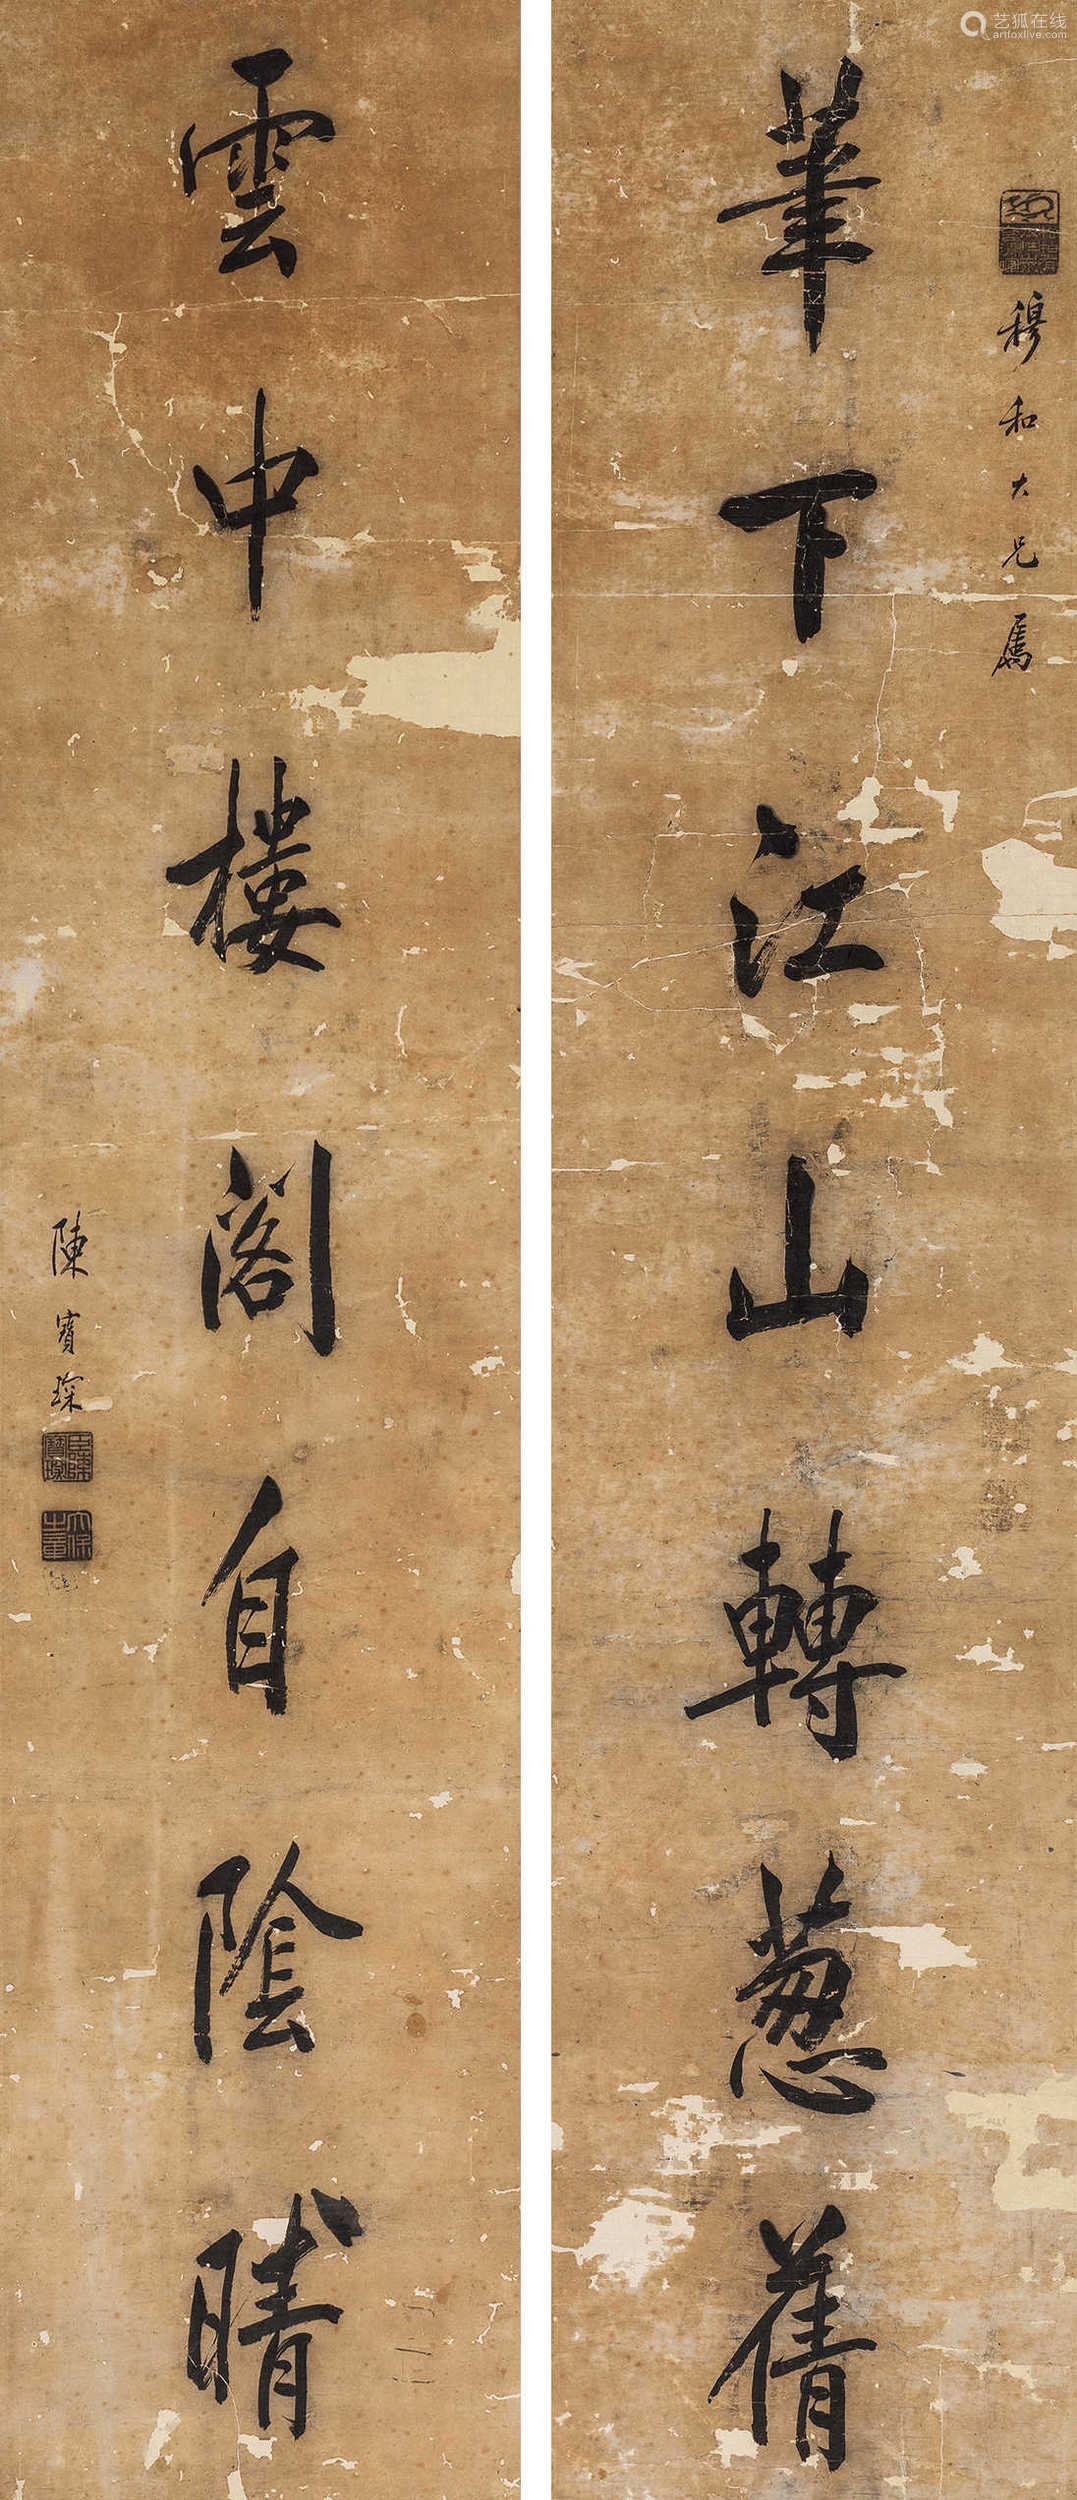 穆和大兄屬
筆下江山轉葱蒨
雲中樓閣自陰晴
陳寶琛
臣陳寶琛
太保世章
艺狐在线
artfoxlive.com